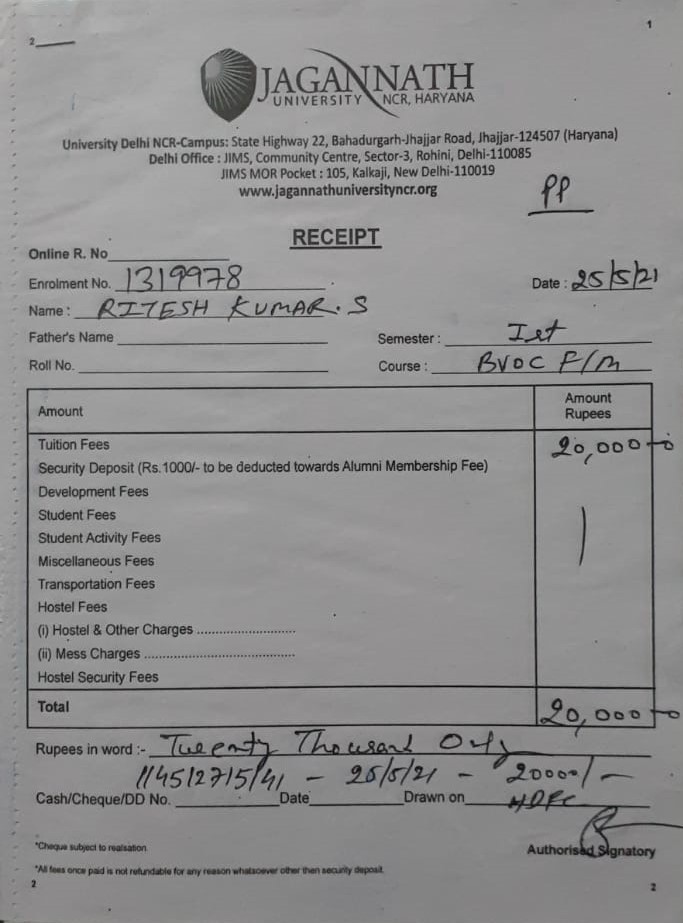 1
2
JAGANNATH
UNIVERSITY NCR, HARYANA
University Delhi NCR-Campus: State Highway 22, Bahadurgarh-Jhajjar Road, Jhajjar-124507 (Haryana)
Delhi Office : JIMS, Community Centre, Sector-3, Rohini, Delhi-110085
JIMS MOR Pocket : 105, Kalkaji, New Delhi-110019
www.jagannathuniversityncr.org
PP
RECEIPT
Online R. No
Enrolment No. 1319978 Date : 25/5/21
Name : RITESH KUMAR.S
Father's Name Semester : Ist
Roll No. Course : BVOC F/M
Amount Amount Rupees
Tuition Fees 20,000
Security Deposit (Rs.1000/- to be deducted towards Alumni Membership Fee)
Development Fees
Student Fees
Student Activity Fees
Miscellaneous Fees
Transportation Fees
Hostel Fees
(i) Hostel & Other Charges ..........................
(ii) Mess Charges .......................................
Hostel Security Fees
Total 20,000
Rupees in word :- Tweenty Thousand Only
114512715/41 - 25/5/21 - 20000/-
Cash/Cheque/DD No. Date Drawn on HDFC
*Cheque subject to realsation
Authorised Signatory
*All fees once paid is not refundable for any reason whatsoever other then security deposit.
2 2